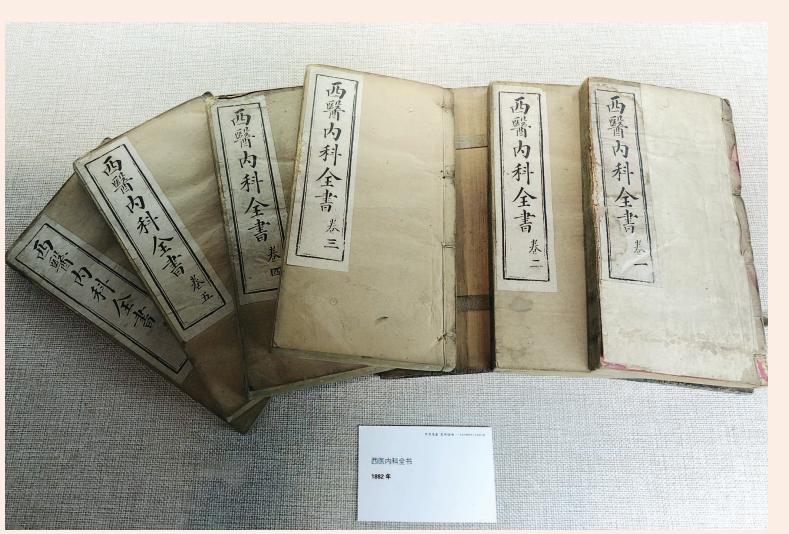 西醫内科全書
西醫内科全書 卷五
西醫内科全書 卷四
西醫内科全書 卷三
西醫内科全書 卷二
西醫内科全書 卷一
西医内科全书
1882 年